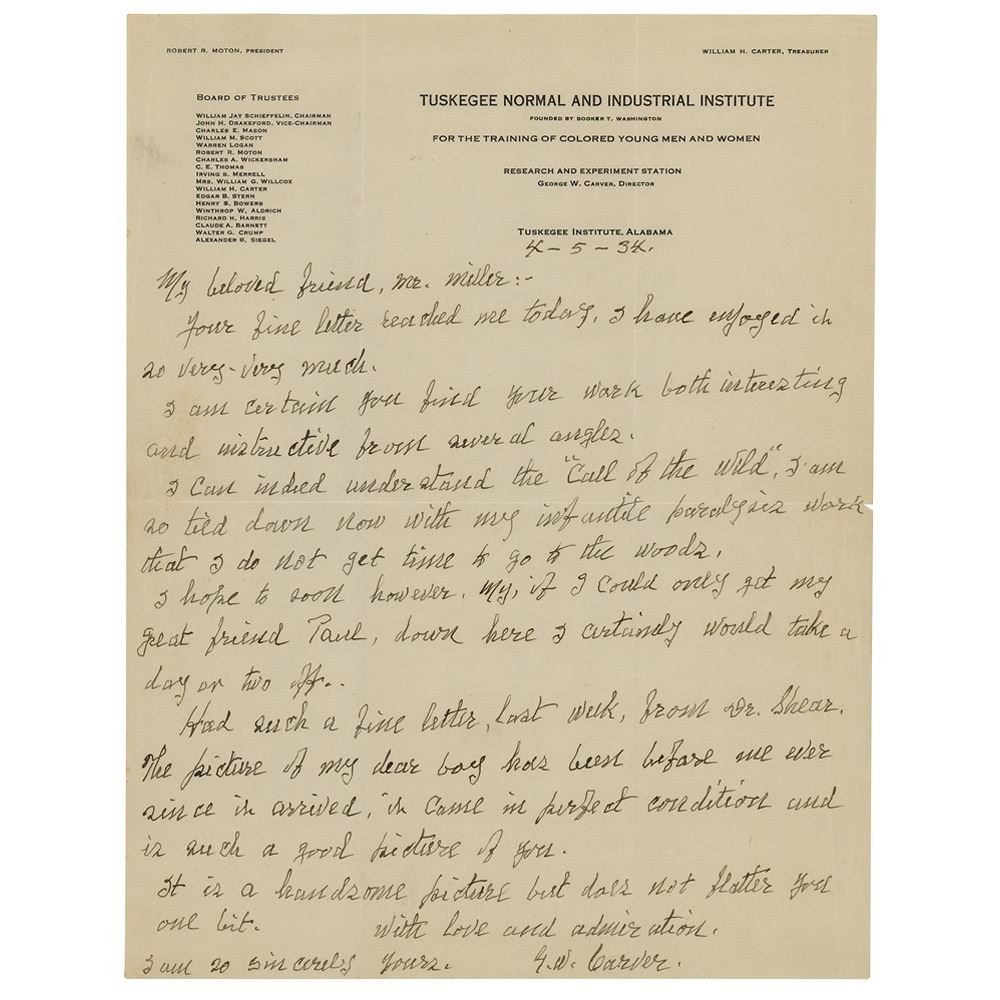 ROBERT R. MOTON, PRESIDENT
WILLIAM H. CARTER, TREASURER
BOARD OF TRUSTEES
WILLIAM JAY SCHIEFFELIN, CHAIRMAN
JOHN H. DRAKEFORD, VICE-CHAIRMAN
CHARLES E. MASON
WILLIAM M. SCOTT
WARREN LOGAN
ROBERT R. MOTON
CHARLES A. WICKERSHAM
C. E. THOMAS
IRVING S. MERRELL
MRS. WILLIAM G. WILLCOX
WILLIAM H. CARTER
EDGAR B. STERN
HENRY S. BOWERS
WINTHROP W. ALDRICH
RICHARD H. HARRIS
CLAUDE A. BARNETT
WALTER G. CRUMP
ALEXANDER B. SIEGEL
TUSKEGEE NORMAL AND INDUSTRIAL INSTITUTE
FOUNDED BY BOOKER T. WASHINGTON
FOR THE TRAINING OF COLORED YOUNG MEN AND WOMEN
RESEARCH AND EXPERIMENT STATION
GEORGE W. CARVER, DIRECTOR
TUSKEGEE INSTITUTE, ALABAMA
4-5-34.
My beloved friend, Mr. Miller:-
Your fine letter reached me today, I have enjoyed it
so very-very much.
I am certain you find your work both interesting
and instructive from several angles.
I can indeed understand the "Call of the Wild", I am
so tied down now with my infantile paralysis work
that I do not get time to go to the woods.
I hope to soon however. My, if I could only get my
great friend Paul, down here I certainly would take a
day or two off..
Had such a fine letter, last week, from Dr. Shear.
The picture of my dear boy has been before me ever
since it arrived, it came in perfect condition and
is such a good picture of you.
It is a handsome picture but does not flatter you
one bit. With love and admiration.
I am so sincerely yours. G.W. Carver.